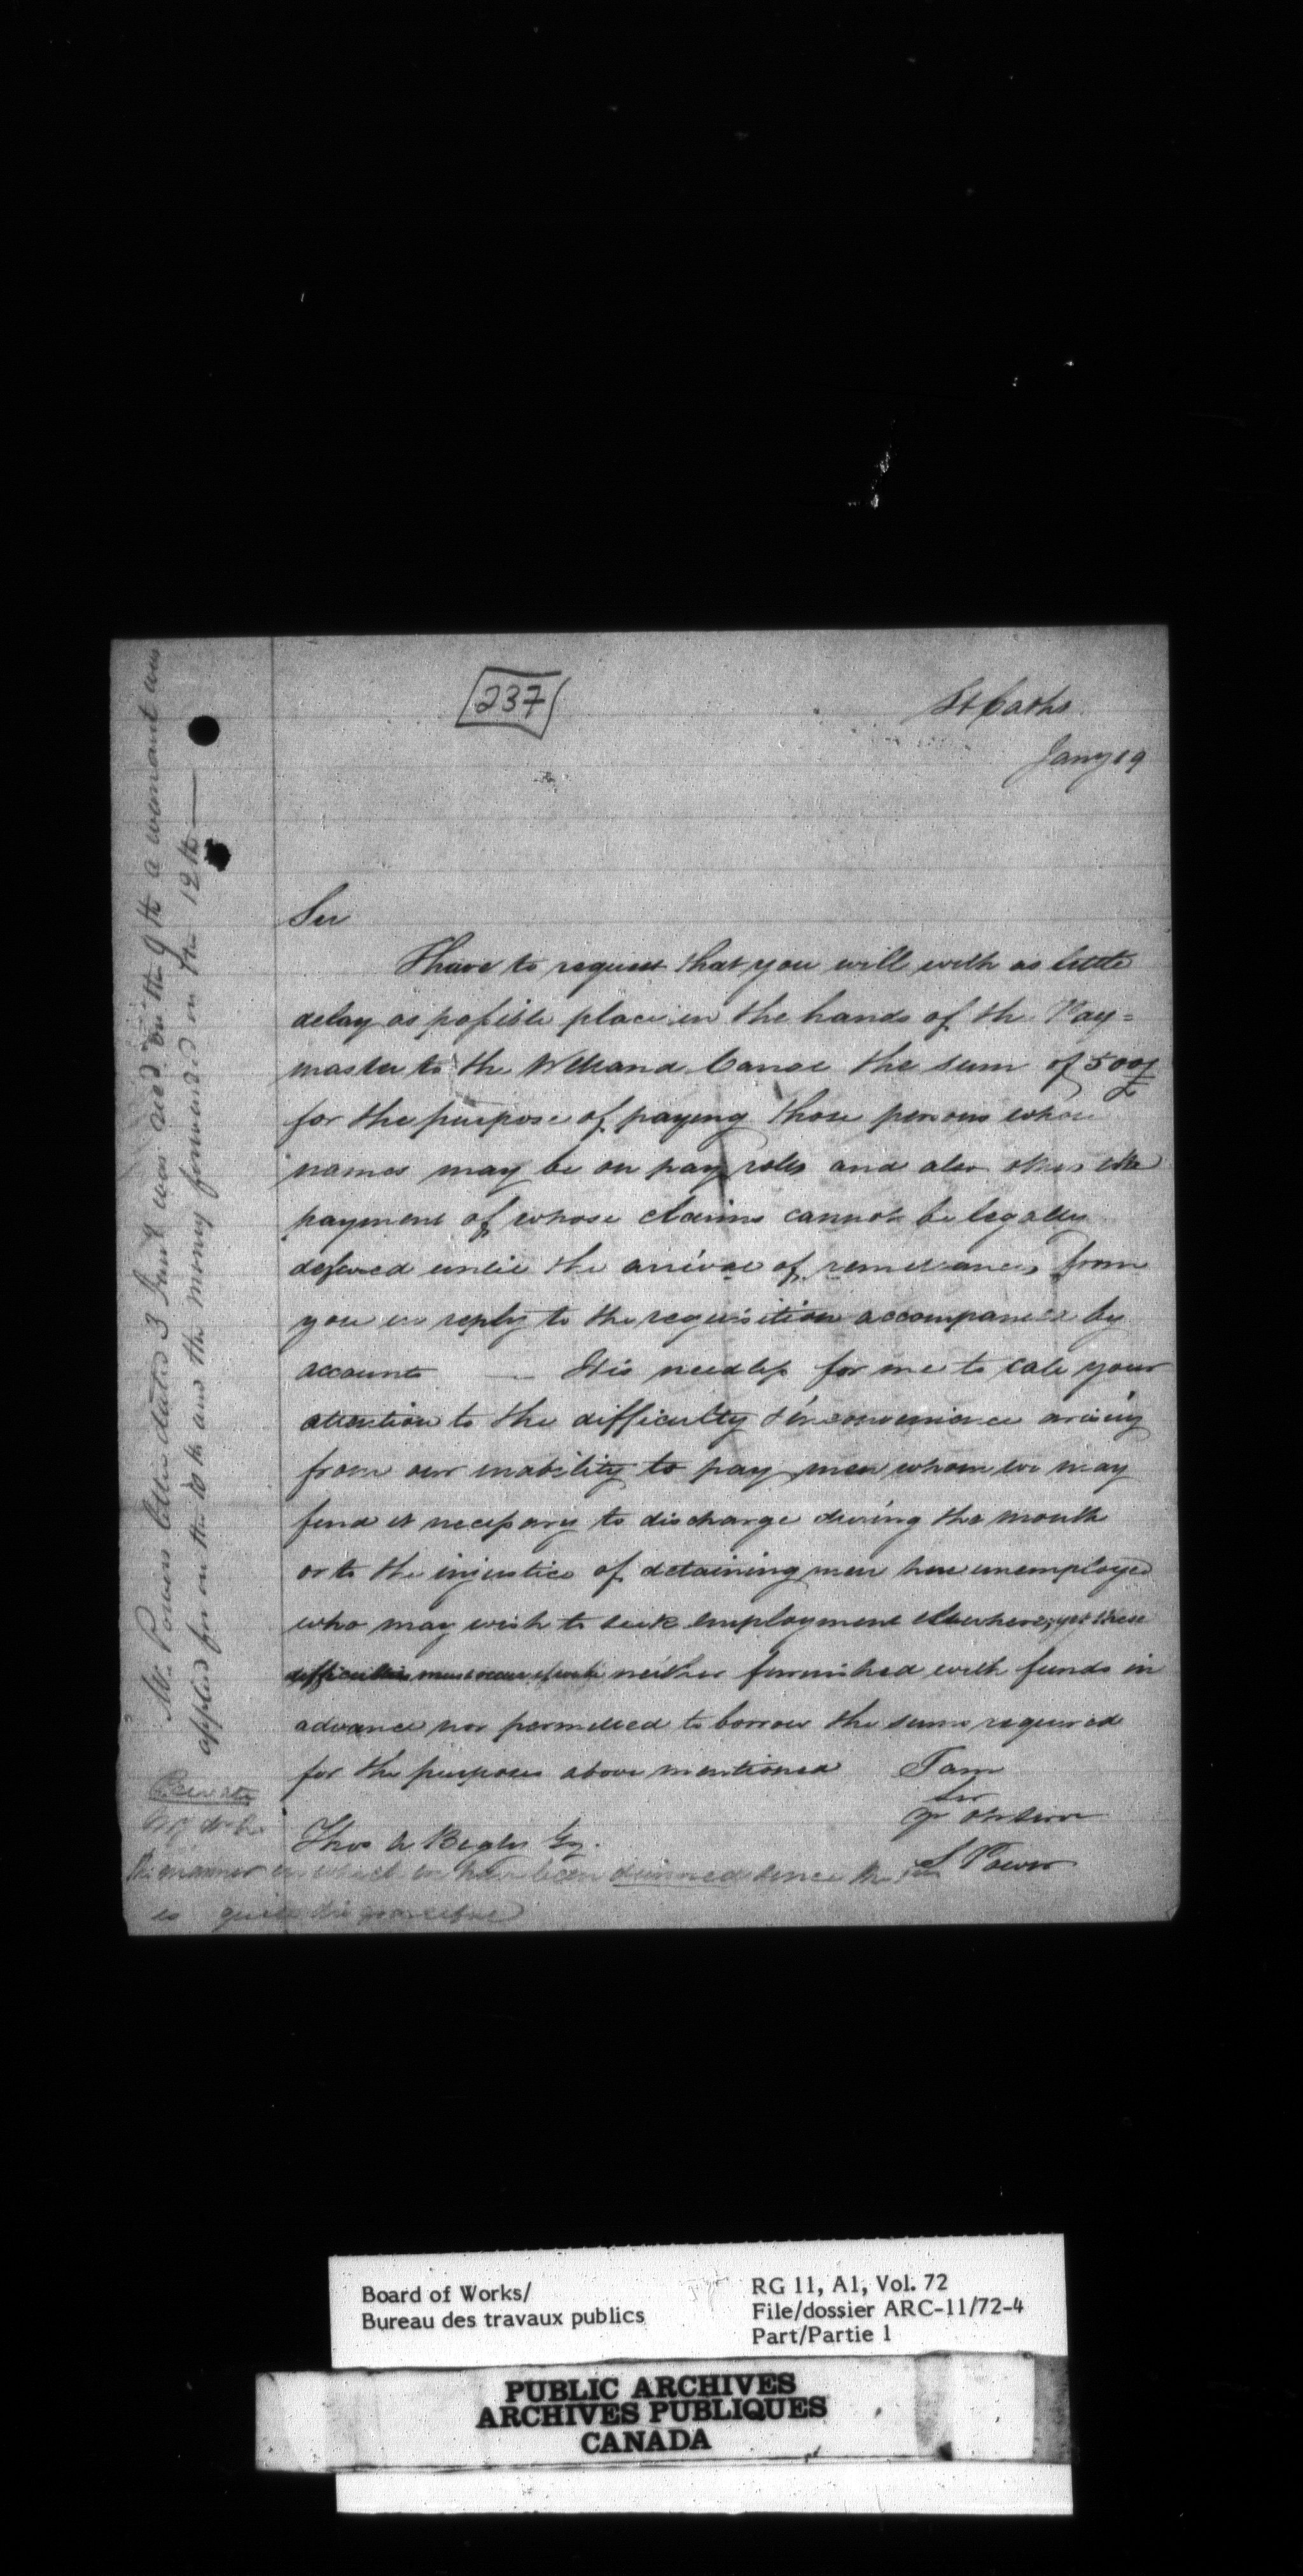 237
St Caths
Jany 19
Sir
I have to request that you will with as little
delay as possible place in the hands of the Pay=
master to the Welland Canal the sum of 500£
for the purpose of paying those persons whose
names may be on pay rolls and also others the
payment of whose claims cannot be legally
defered until the arrival of remittances from
you in reply to the requisition accompanied by
accounts — It is needless for me to call your
attention to the difficulty & inconvenience arising
from our inability to pay men whom we may
find it necessary to discharge during the month
or to the injustice of detaining men here unemployed
who may wish to seek employment elsewhere, yet these
difficulties must occur if we be neither furnished with funds in
advance nor permitted to borrow the sums required
for the purposes above mentioned I am
Sir
yr obt Servt
S Power
Thos A Begly Esq.
Private
The manner in which we have been dunned since the
is quite disgraceful
Mr. Powers letter dated 3 Jany was recd on the 9th a warrant was
applied for on the 10th and the money forwarded on the 12th —
Board of Works/
Bureau des travaux publics
RG 11, A1, Vol. 72
File/dossier ARC-11/72-4
Part/Partie 1
PUBLIC ARCHIVES
ARCHIVES PUBLIQUES
CANADA